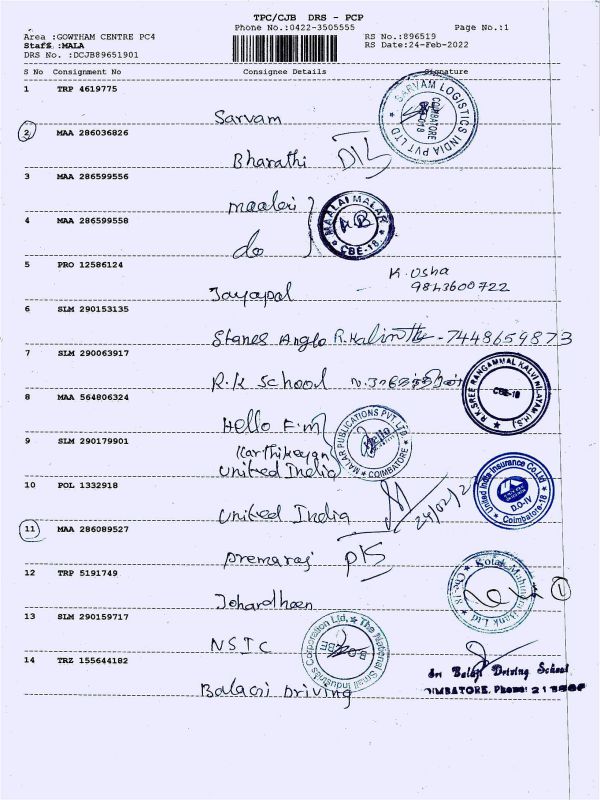 TPC/CJB DRS - PCP
Phone No.:0422-3505555 Page No.:1
Area :GOWTHAM CENTRE PC4 RS No.:896519
Staff :MALA RS Date:24-Feb-2022
DRS No. :DCJB89651901
S No Consignment No Consignee Details Signature
1 TRP 4619775
Sarvam
SARVAM LOGISTICS INDIA PVT LTD
COIMBATORE
2 MAA 286036826
Bharathi DIS
3 MAA 286599556
maalai
MAALAI MALAR
CBE-18
4 MAA 286599558
do
5 PRO 12586124
K. Usha
Jayapal 9843600722
6 SLM 290153135
Stanes Anglo - 7448659873
7 SLM 290063917
R.K School
R.K.SREE RANGAMMAL KALVI NILAYAM (H.S)
CBE-18
8 MAA 564806324
Hello F.M
MALAR PUBLICATIONS PVT. LTD.
Hello
COIMBATORE
9 SLM 290179901
Karthikeyan
United India
10 POL 1332918
United India 24/02/2
United India Insurance Co.Ltd
D.O-IV
Coimbatore-18
11 MAA 286089527
Premaraj
12 TRP 5191749
Kotak Mahindra Bank Ltd
1
13 SLM 290159717
NSIC
The National Small Industries Corporation Ltd.
14 TRZ 155644182
Balaji Driving
Sri Balaji Driving School
OIMBATORE. Phone: